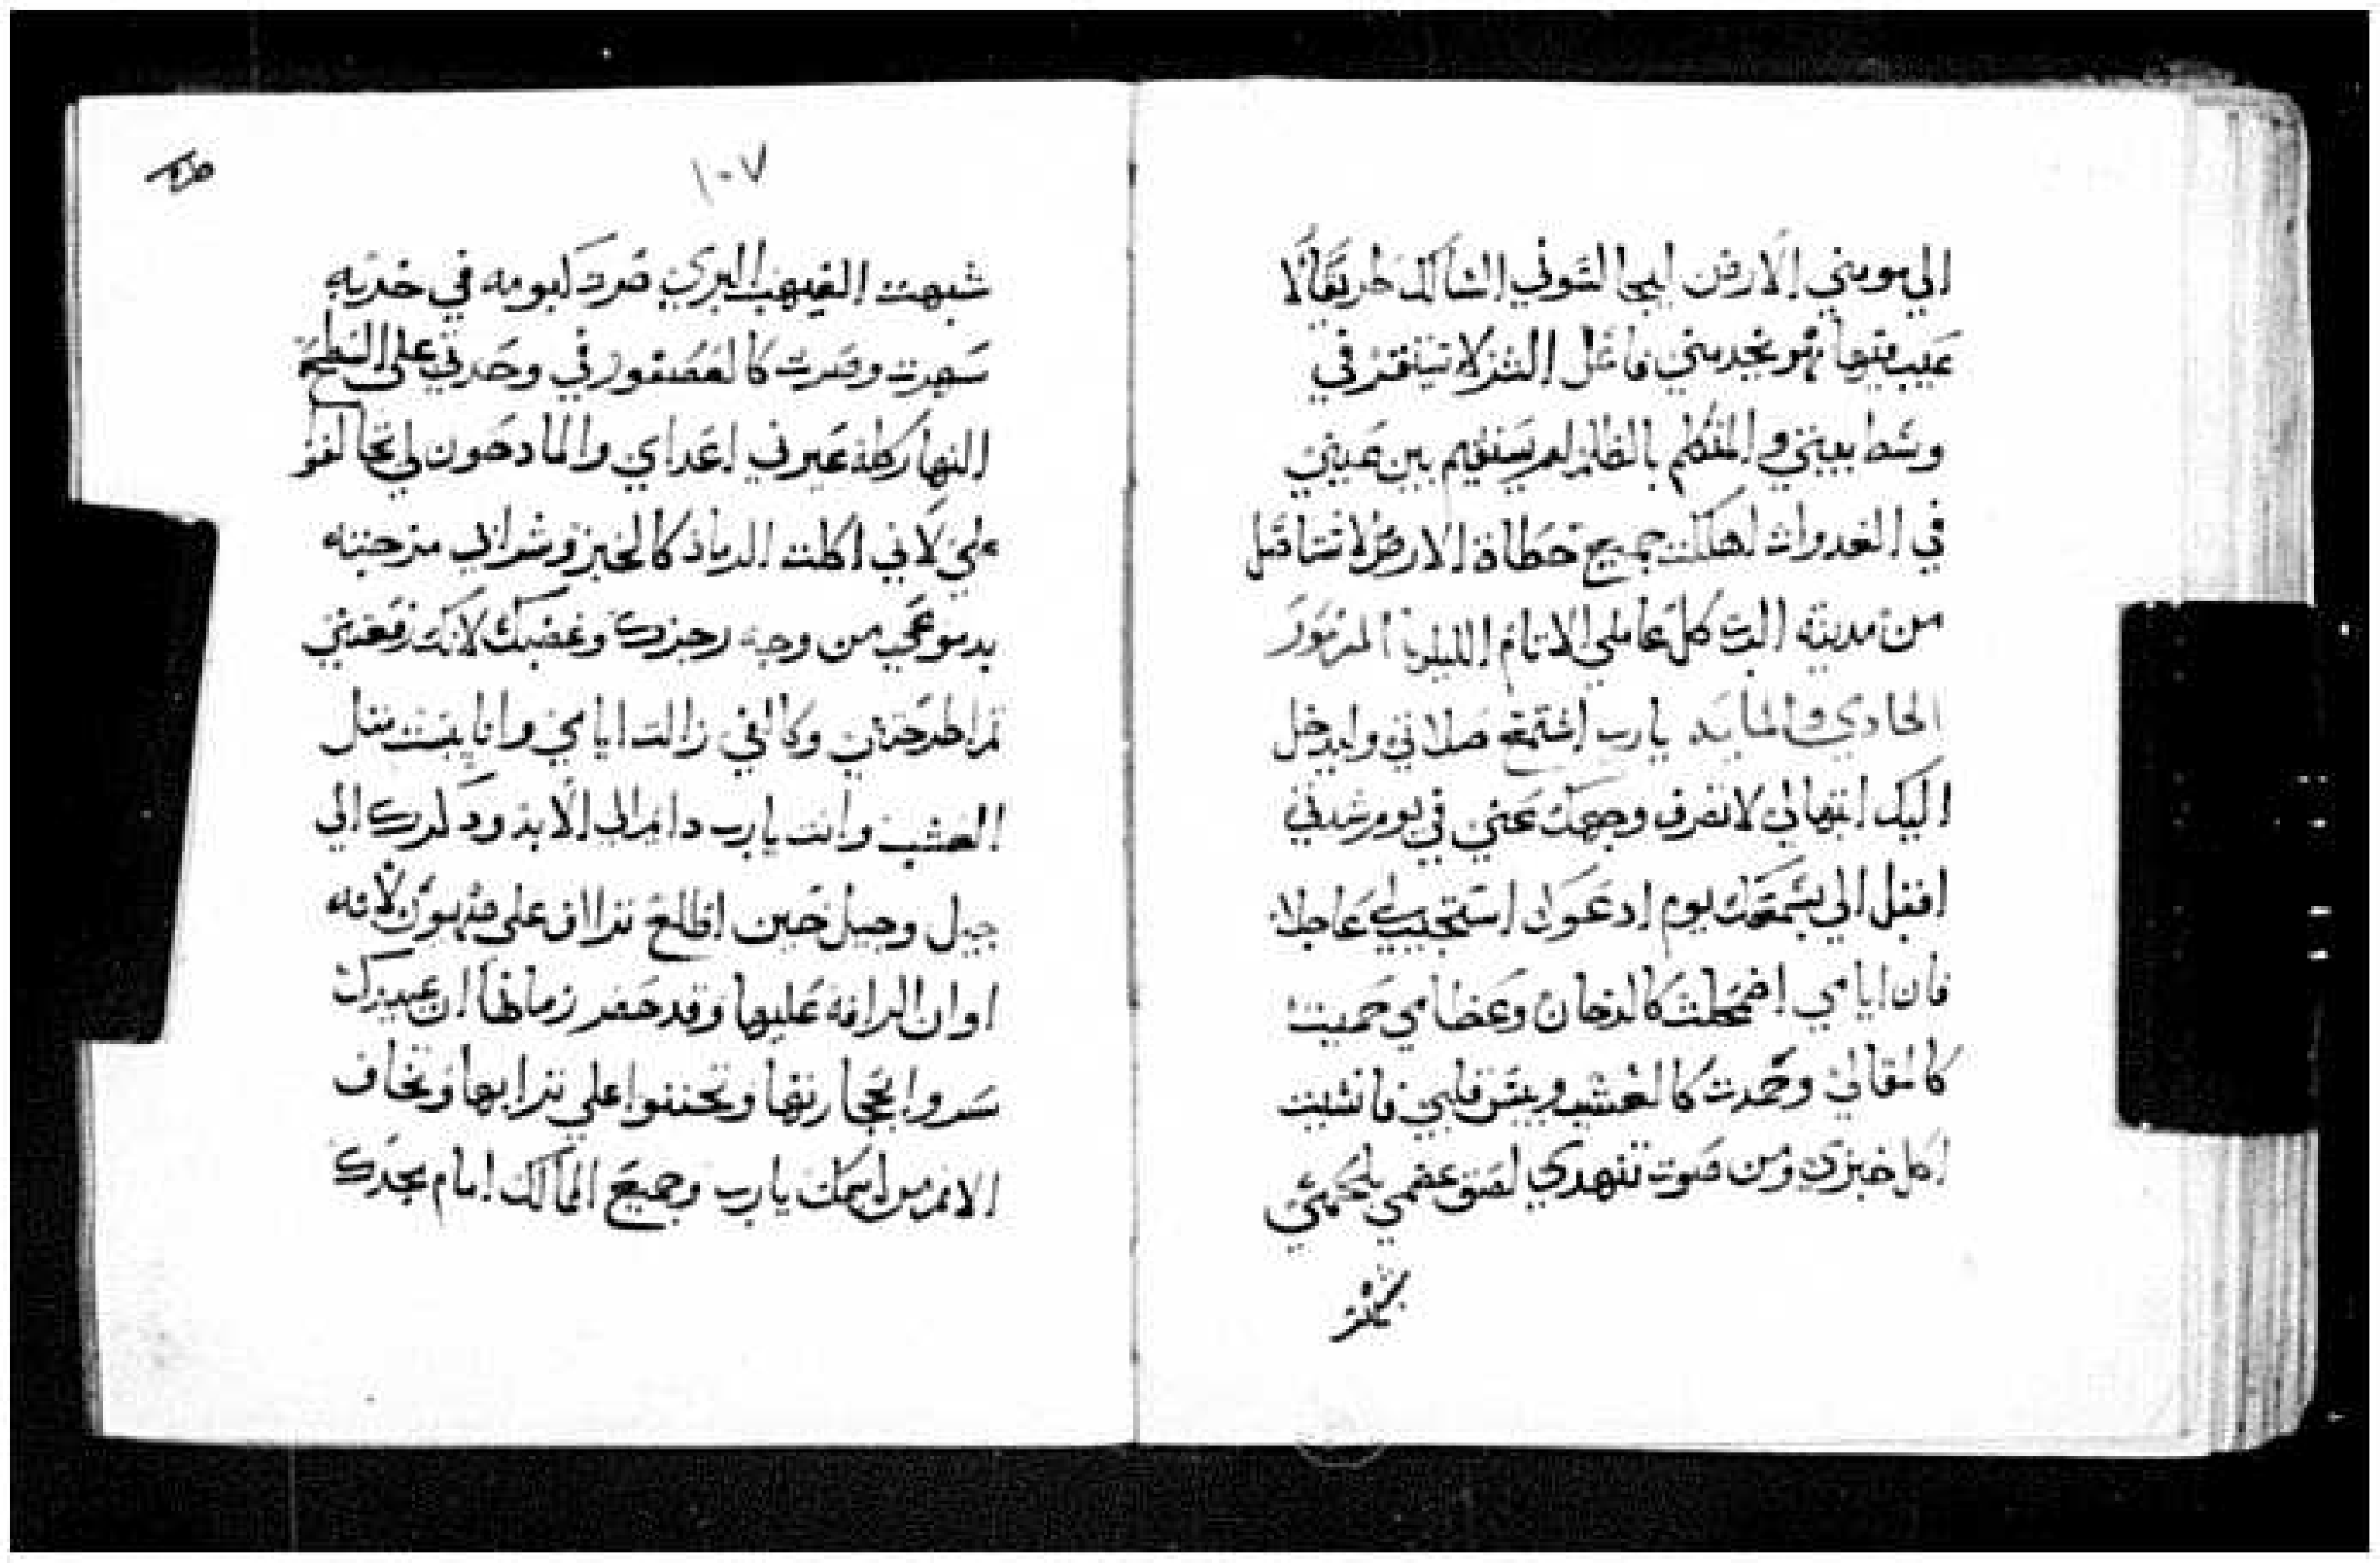 الي مومني الارض ليجالسوني السالك طريقا لا
عيب فيها هو يخدمني فاعل الشر لا يستقر في
وسط بيتي والمتكلم بالظلم لم يستقيم بين عيني
في الغدوات اهلكت جميع خطاة الارض لاستاصل
من مدينة الرب كل عاملي الاثام الليلويا المزمور
الحادي والمايه يارب استمع صلاتي وليدخل
اليك ابتهالي لا تصرف وجهك عني في يوم شدتي
اقبل الي بسمعك يوم ادعوك استجيب لي عاجلا
فان ايامي اضمحلت كالدخان وعظامي حميت
كالمقالي وحمدت كالعشب ويبس قلبي فانسيت
اكل خبزي ومن صوت تنهدي لصق عظمي بلحمي
شبهت
١٠٧
شبهت القيهب البري صرت كبومه في خربه
سهرت وصرت كالعصفور في وحدتي على السطح
النهار كله عيرني اعداي والمادحون لي تحالفو
علي لاني اكلت الرماد كالخبز وشرابي مزجته
بدموعي من وجه رجزك وغضبك لانك رفعتني
ثم اطرحتني وكالفي زالت ايامي وانا يبست مثل
العشب وانت يارب دايم الي الابد وذكرك الي
جيل وجيل حين اطلع تتراف على صهيون لانه
اوان الرافة عليها وقد حضر زمانها ان عبيدك
سروا بحجارتها وتحننوا علي ترابها وتخاف
الامم من اسمك يارب وجميع الممالك امام مجدك